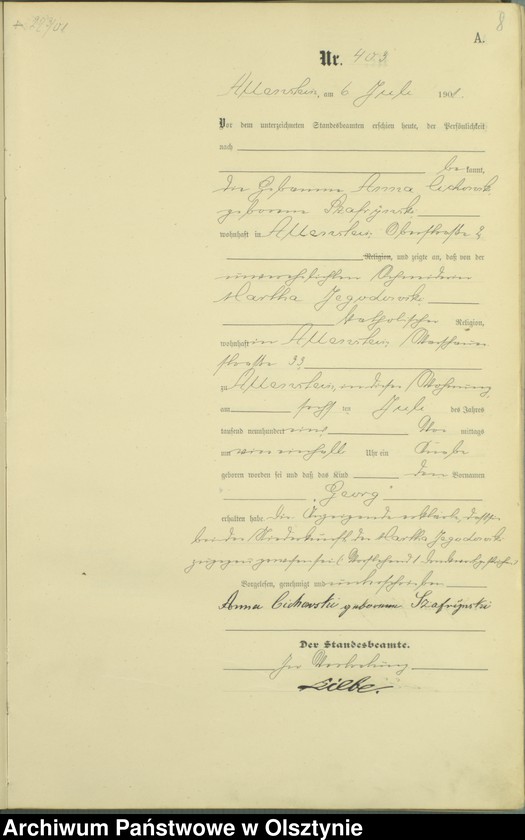 8
A.
Nr. 403
Allenstein, am 6 Juli 1901.
Vor dem unterzeichneten Standesbeamten erschien heute, der Persönlichkeit
nach
be kannt,
die Hebamme Anna Cichowski
geborene Szafrynski
wohnhaft in Allenstein, Oberstraße
Religion, und zeigte an, daß von der
unverehelichten Schneiderin
Martha Jegodowski
katholischer Religion,
wohnhaft in Allenstein, Warschauer
straße 33
zu Allenstein, in dieser Wohnung
am sechsten Juli des Jahres
tausend neunhundert eins Vor mittags
um Uhr ein Knabe
geboren worden sei und daß das Kind den Vornamen
"Georg"
erhalten habe. Die Anzeigende erklärte, daß sie
bei der Niederkunft der Martha Jegodowski
zugegen gewesen sei.
Vorgelesen, genehmigt und unterschrieben
Anna Cichowski geborene Szafrynski
Der Standesbeamte.
In Vertretung
Archiwum Państwowe w Olsztynie